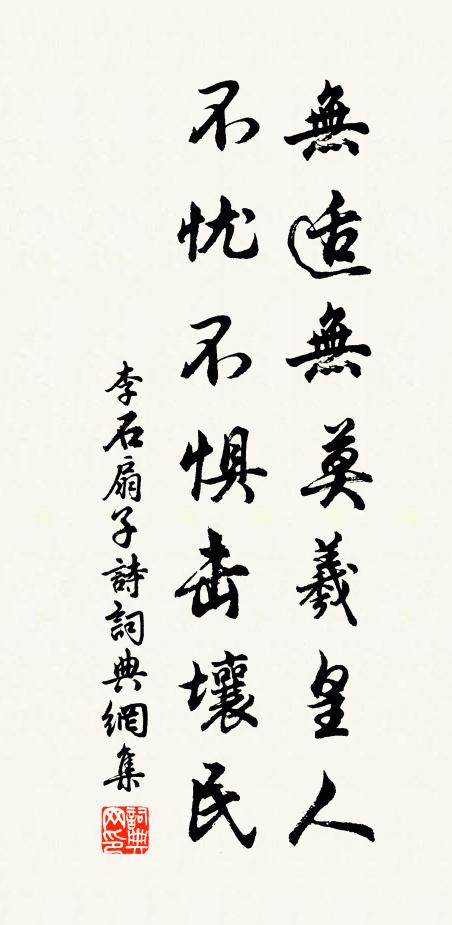 無适無莫羲皇人
不忧不惧击壤民
李石扇子詩詞典網集
詞典網印